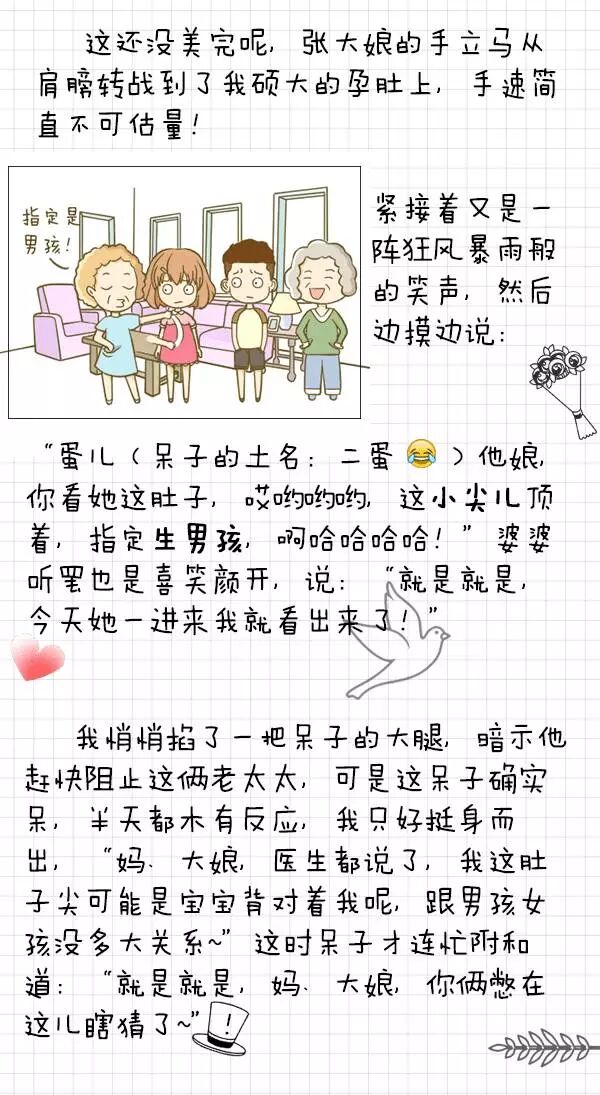 这还没美完呢，张大娘的手立马从
肩膀转战到了我硕大的孕肚上，手速简
直不可估量！
指定是
男孩！
紧接着又是一
阵狂风暴雨般
的笑声，然后
边摸边说：
“蛋儿（呆子的土名：二蛋😂）他娘，
你看她这肚子，哎哟哟哟，这小尖儿顶
着，指定生男孩，啊哈哈哈哈！”婆婆
听罢也是喜笑颜开，说：“就是就是，
今天她一进来我就看出来了！”
我悄悄掐了一把呆子的大腿，暗示他
赶快阻止这俩老太太，可是这呆子确实
呆，半天都木有反应，我只好挺身而
出，“妈、大娘，医生都说了，我这肚
子尖可能是宝宝背对着我呢，跟男孩女
孩没多大关系~”这时呆子才连忙附和
道：“就是就是，妈、大娘，你俩憋在
这儿瞎猜了~”
!